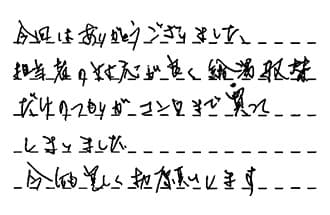 今回はありがとうございました。
担当者の対応が良く給湯取替
だけのつもりがコンロまで買って
しまいました
今後宜しくお願いします